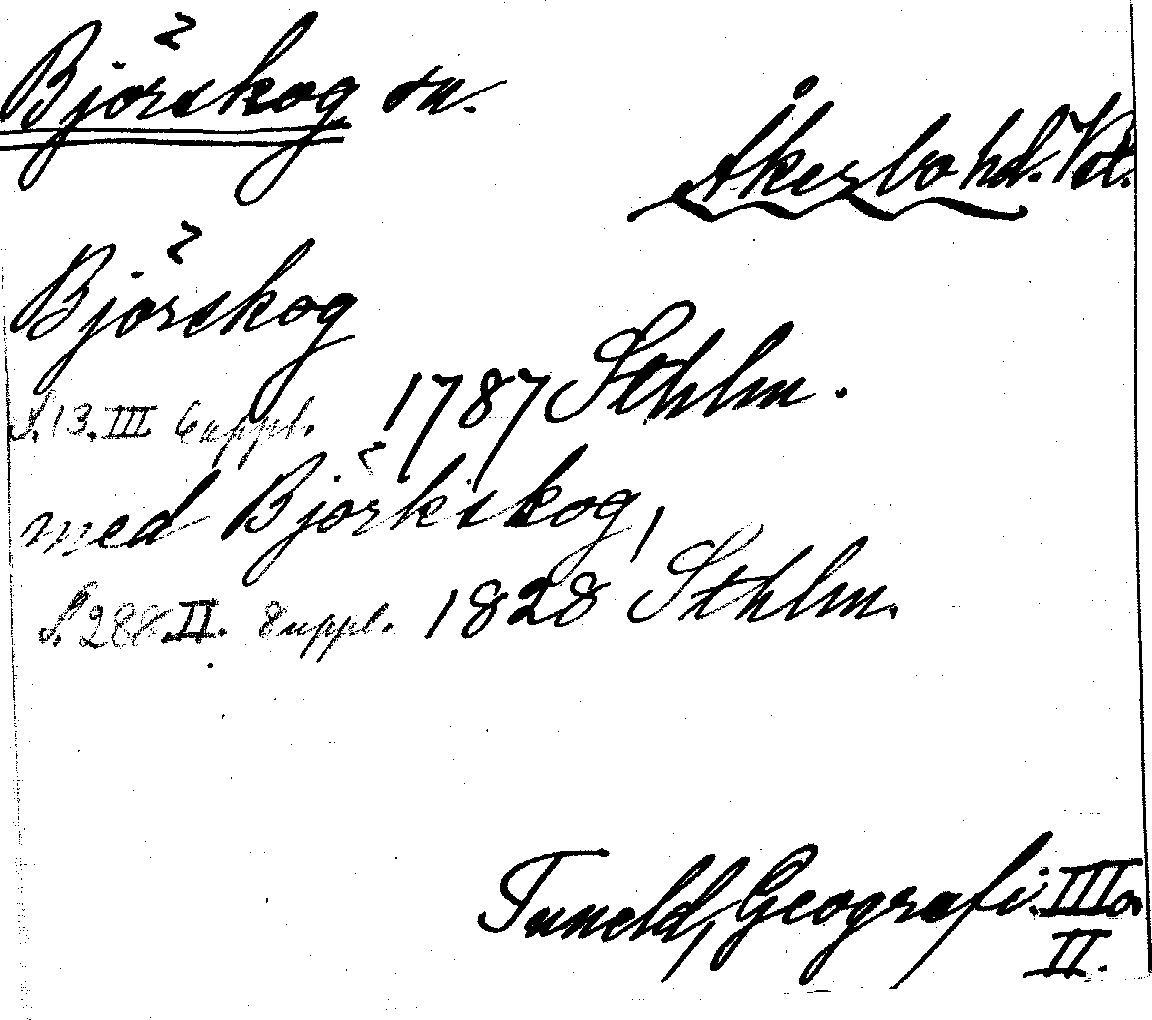 Björskog sn.
Åkerbo hd. Vstl.
Björskog
S. 13. III 6 uppl. 1787 Sthlm.
med Björkskog,
S. 288. II. 8 uppl. 1828 Sthlm.
Tuneld, Geografi. III o.
II.